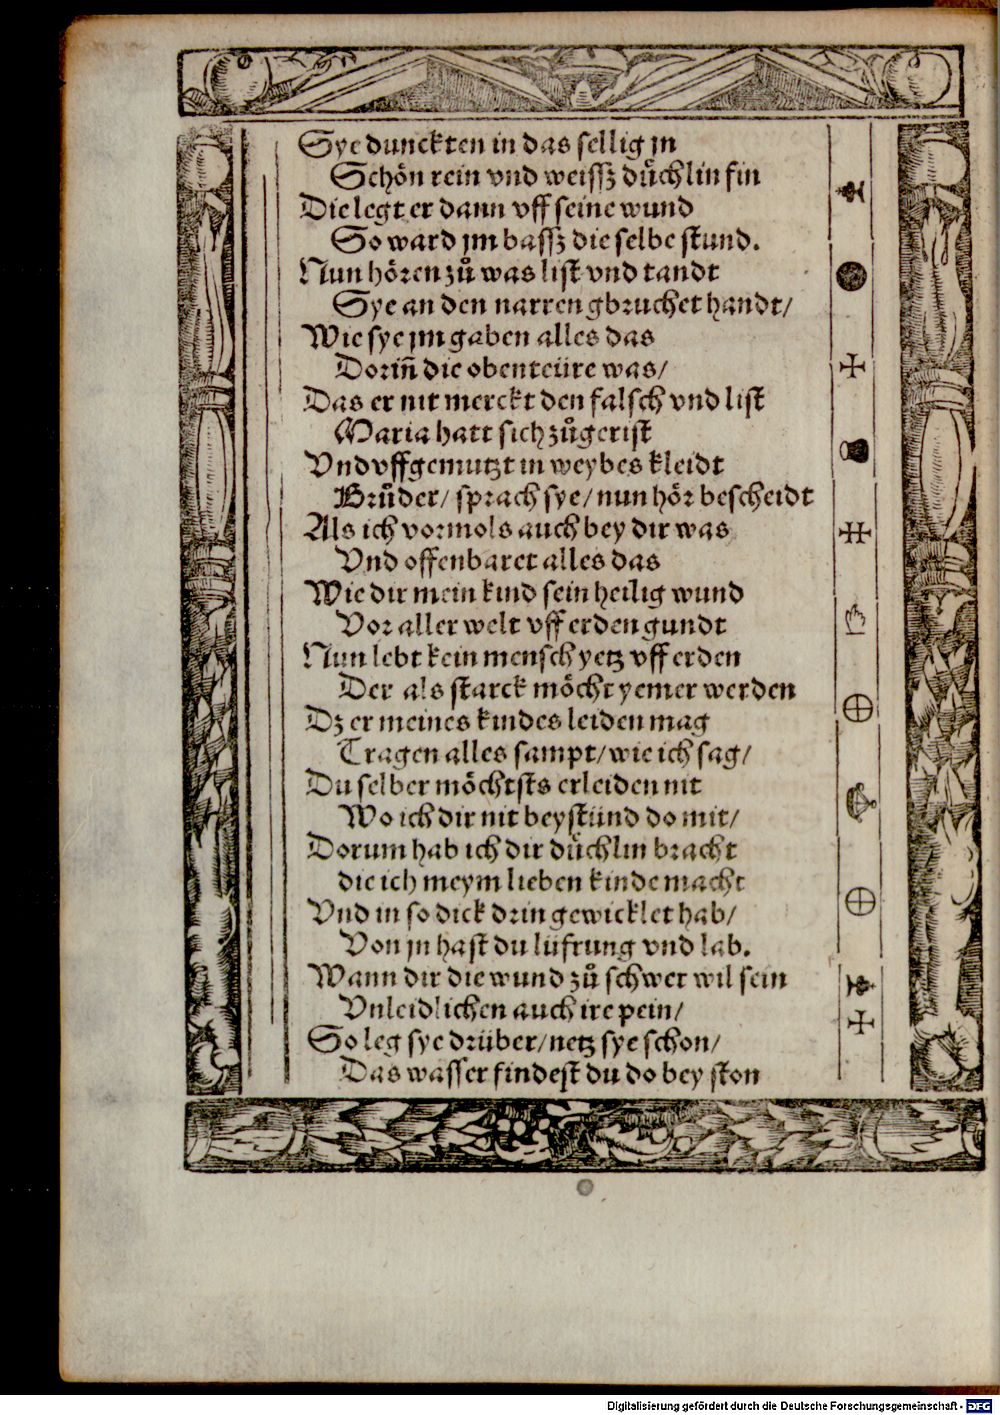 Sye dunckten in das sellig jn
Schön rein vnd weissz duͤchlin fin
Die legt er dann vff seine wund
So ward jm bassz die selbe stund.
Nun hören zuͦ was list vnd tandt
Sye an den narren gbruchet handt/
Wie sye jm gaben alles das
Dorin̄ die obenteüre was/
Das er nit merckt den falsch vnd list
Maria hatt sich zuͦgerist
Vnd vffgemutzt in weybes kleidt
Bruͦder/ sprach sye/ nun hör bescheidt
Als ich vormols auch bey dir was
Vnd offenbaret alles das
Wie dir mein kind sein heilig wund
Vor aller welt vff erden gundt
Nun lebt kein mensch yetz vff erden
Der als starck möcht yemer werden
Dz er meines kindes leiden mag
Tragen alles sampt/ wie ich sag/
Du selber möchtsts erleiden nit
Wo ich dir nit beystünd do mit/
Dorum hab ich dir duͤchlin bracht
die ich meym lieben kinde macht
Vnd in so dick drin gewicklet hab/
Von jn hast du lüfrung vnd lab.
Wann dir die wund zuͦ schwer wil sein
Vnleidlichen auch ire pein/
So leg sye drüber/ netz sye schon/
Das wasser findest du do bey ston
Digitalisierung gefördert durch die Deutsche Forschungsgemeinschaft - DFG